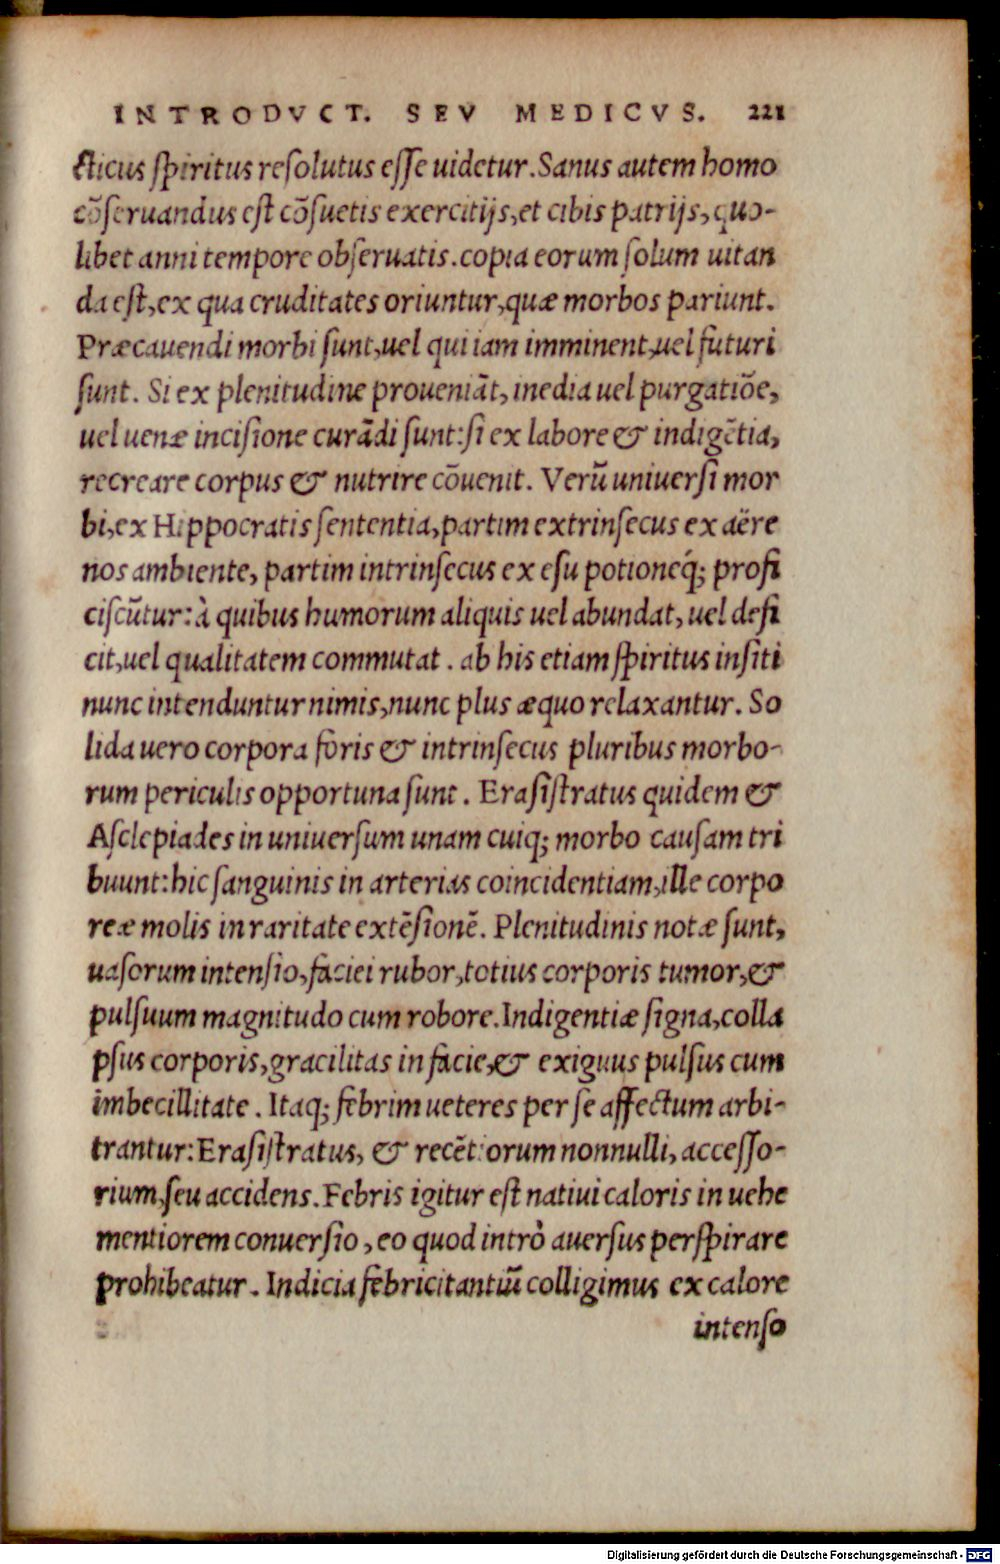 INTRODVCT. SEV MEDICVS. 221
cticus spiritus resolutus esse uidetur. Sanus autem homo
cõseruandus est cõsuetis exercitijs, et cibis patrijs, quo-
libet anni tempore obseruatis. copia eorum solum uitan
da est, ex qua cruditates oriuntur, quæ morbos pariunt.
Præcauendi morbi sunt, uel qui iam imminent, uel futuri
sunt. Si ex plenitudine proueniãt, inedia uel purgatiõe,
uel uenæ incisione curãdi sunt: si ex labore & indigẽtia,
recreare corpus & nutrire cõuenit. Verũ uniuersi mor
bi, ex Hippocratis sententia, partim extrinsecus ex aëre
nos ambiente, partim intrinsecus ex esu potioneq́; profi
ciscũtur: à quibus humorum aliquis uel abundat, uel defi
cit, uel qualitatem commutat. ab his etiam spiritus insiti
nunc intenduntur nimis, nunc plus æquo relaxantur. So
lida uero corpora foris & intrinsecus pluribus morbo-
rum periculis opportuna sunt. Erasistratus quidem &
Asclepiades in uniuersum unam cuiq; morbo causam tri
buunt: hic sanguinis in arterias coincidentiam, ille corpo
reæ molis in raritate extẽsionẽ. Plenitudinis notæ sunt,
uasorum intensio, faciei rubor, totius corporis tumor, &
pulsuum magnitudo cum robore. Indigentiæ signa, colla
psus corporis, gracilitas in facie, & exiguus pulsus cum
imbecillitate. Itaq; febrim ueteres per se affectum arbi-
trantur: Erasistratus, & recẽtiorum nonnulli, accesso-
rium, seu accidens. Febris igitur est natiui caloris in uehe
mentiorem conuersio, eo quod intrò auersus perspirare
prohibeatur. Indicia febricitantiũ colligimus ex calore
intenso
Digitalisierung gefördert durch die Deutsche Forschungsgemeinschaft - DFG